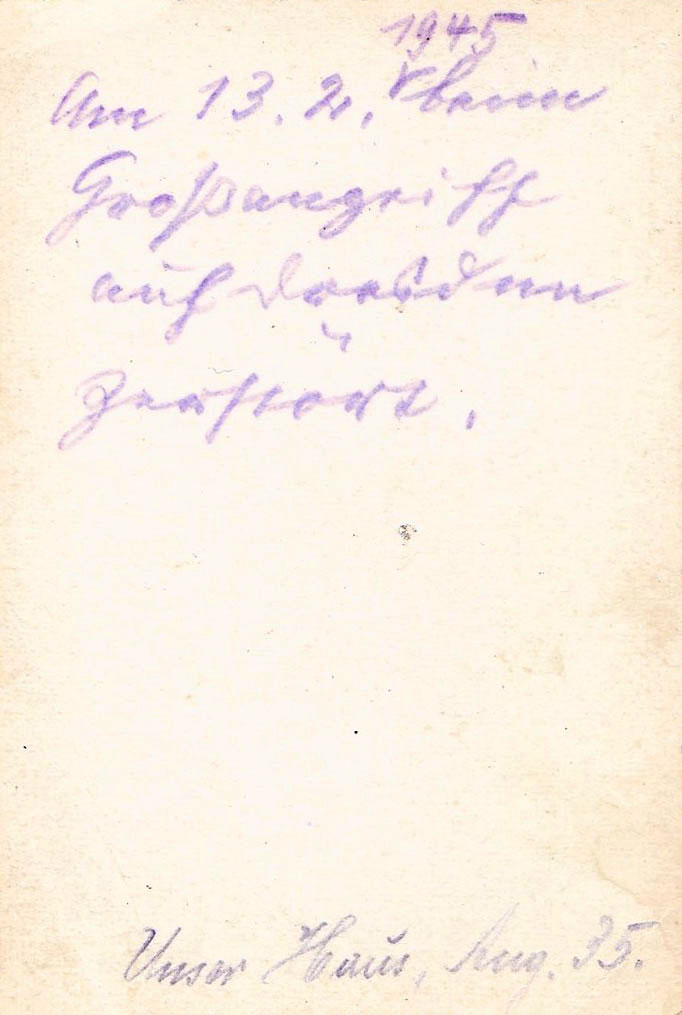 1945
Am 13. 2. beim
Großangriff
auf Dresden
zerstört.
Unser Haus, Aug. 35.